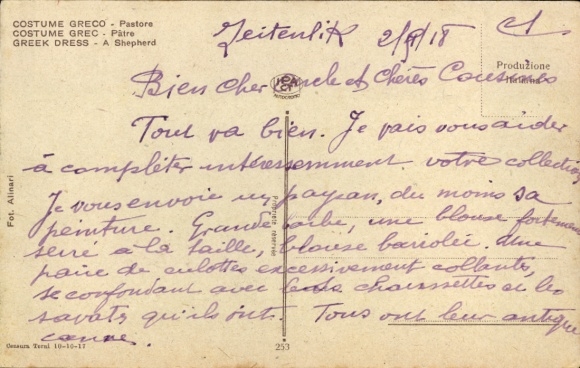 COSTUME GRECO - Pastore
COSTUME GREC - Pâtre
GREEK DRESS - A Shepherd
Zeitenlik 2/9/18
Produzione
Italiana
Bien cher Oncle et Chères Cousines
Tout va bien. Je vais vous aider
à compléter intéressemment votre collection
Je vous envoie un paysan, du moins sa
peinture. Grande barbe, une blouse fortement
serré à la taille, blouse bariolée. Une
paire de culottes excessivement collantes,
se confondant avec leurs chaussettes et les
savats qu'ils ont. Tous ont leur antique
canne.
Fot. Alinari
Proprietà riservata
Censura Terni 10-10-17
253